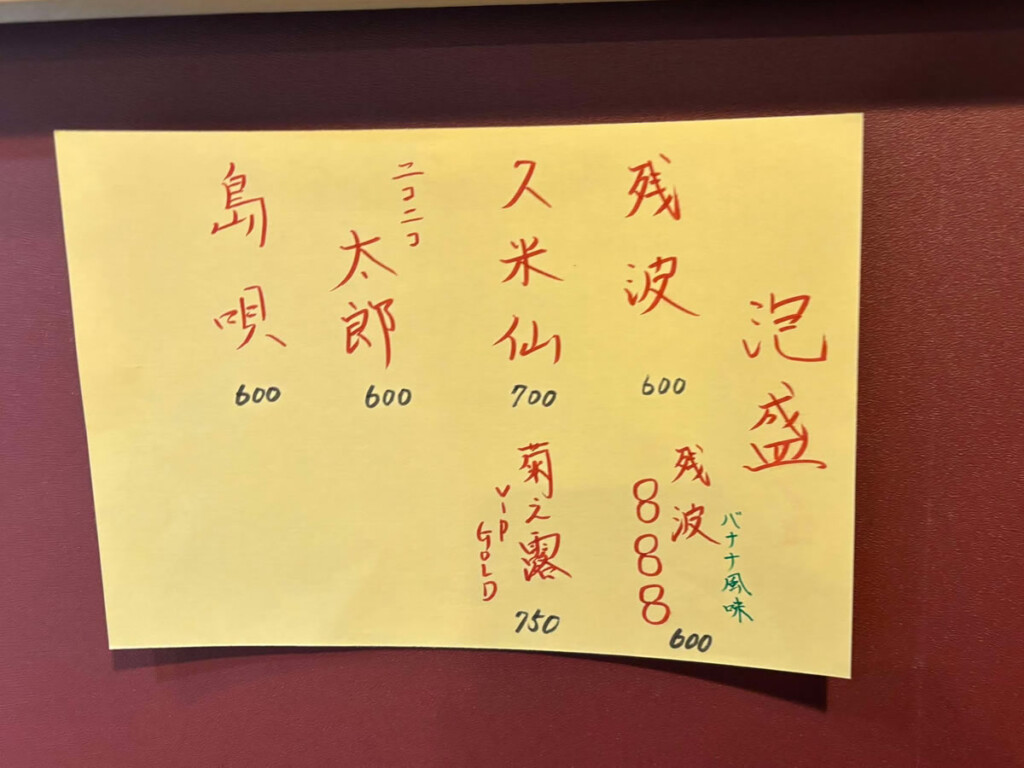 泡盛
残波
600
残波
888
バナナ風味
600
久米仙
700
菊之露
VIP GOLD
750
ニコニコ
太郎
600
島唄
600